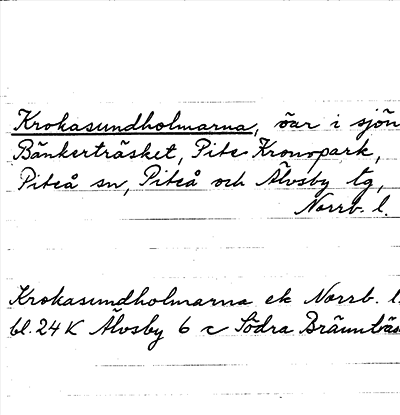 Krokasundholmarna, öar i sjön
Bänkerträsket, Pite Kronopark,
Piteå sn, Piteå och Älvsby tg,
Norrb. l.
Krokasundholmarna ek Norrb. l.
bl. 24 K Älvsby 6 c Södra